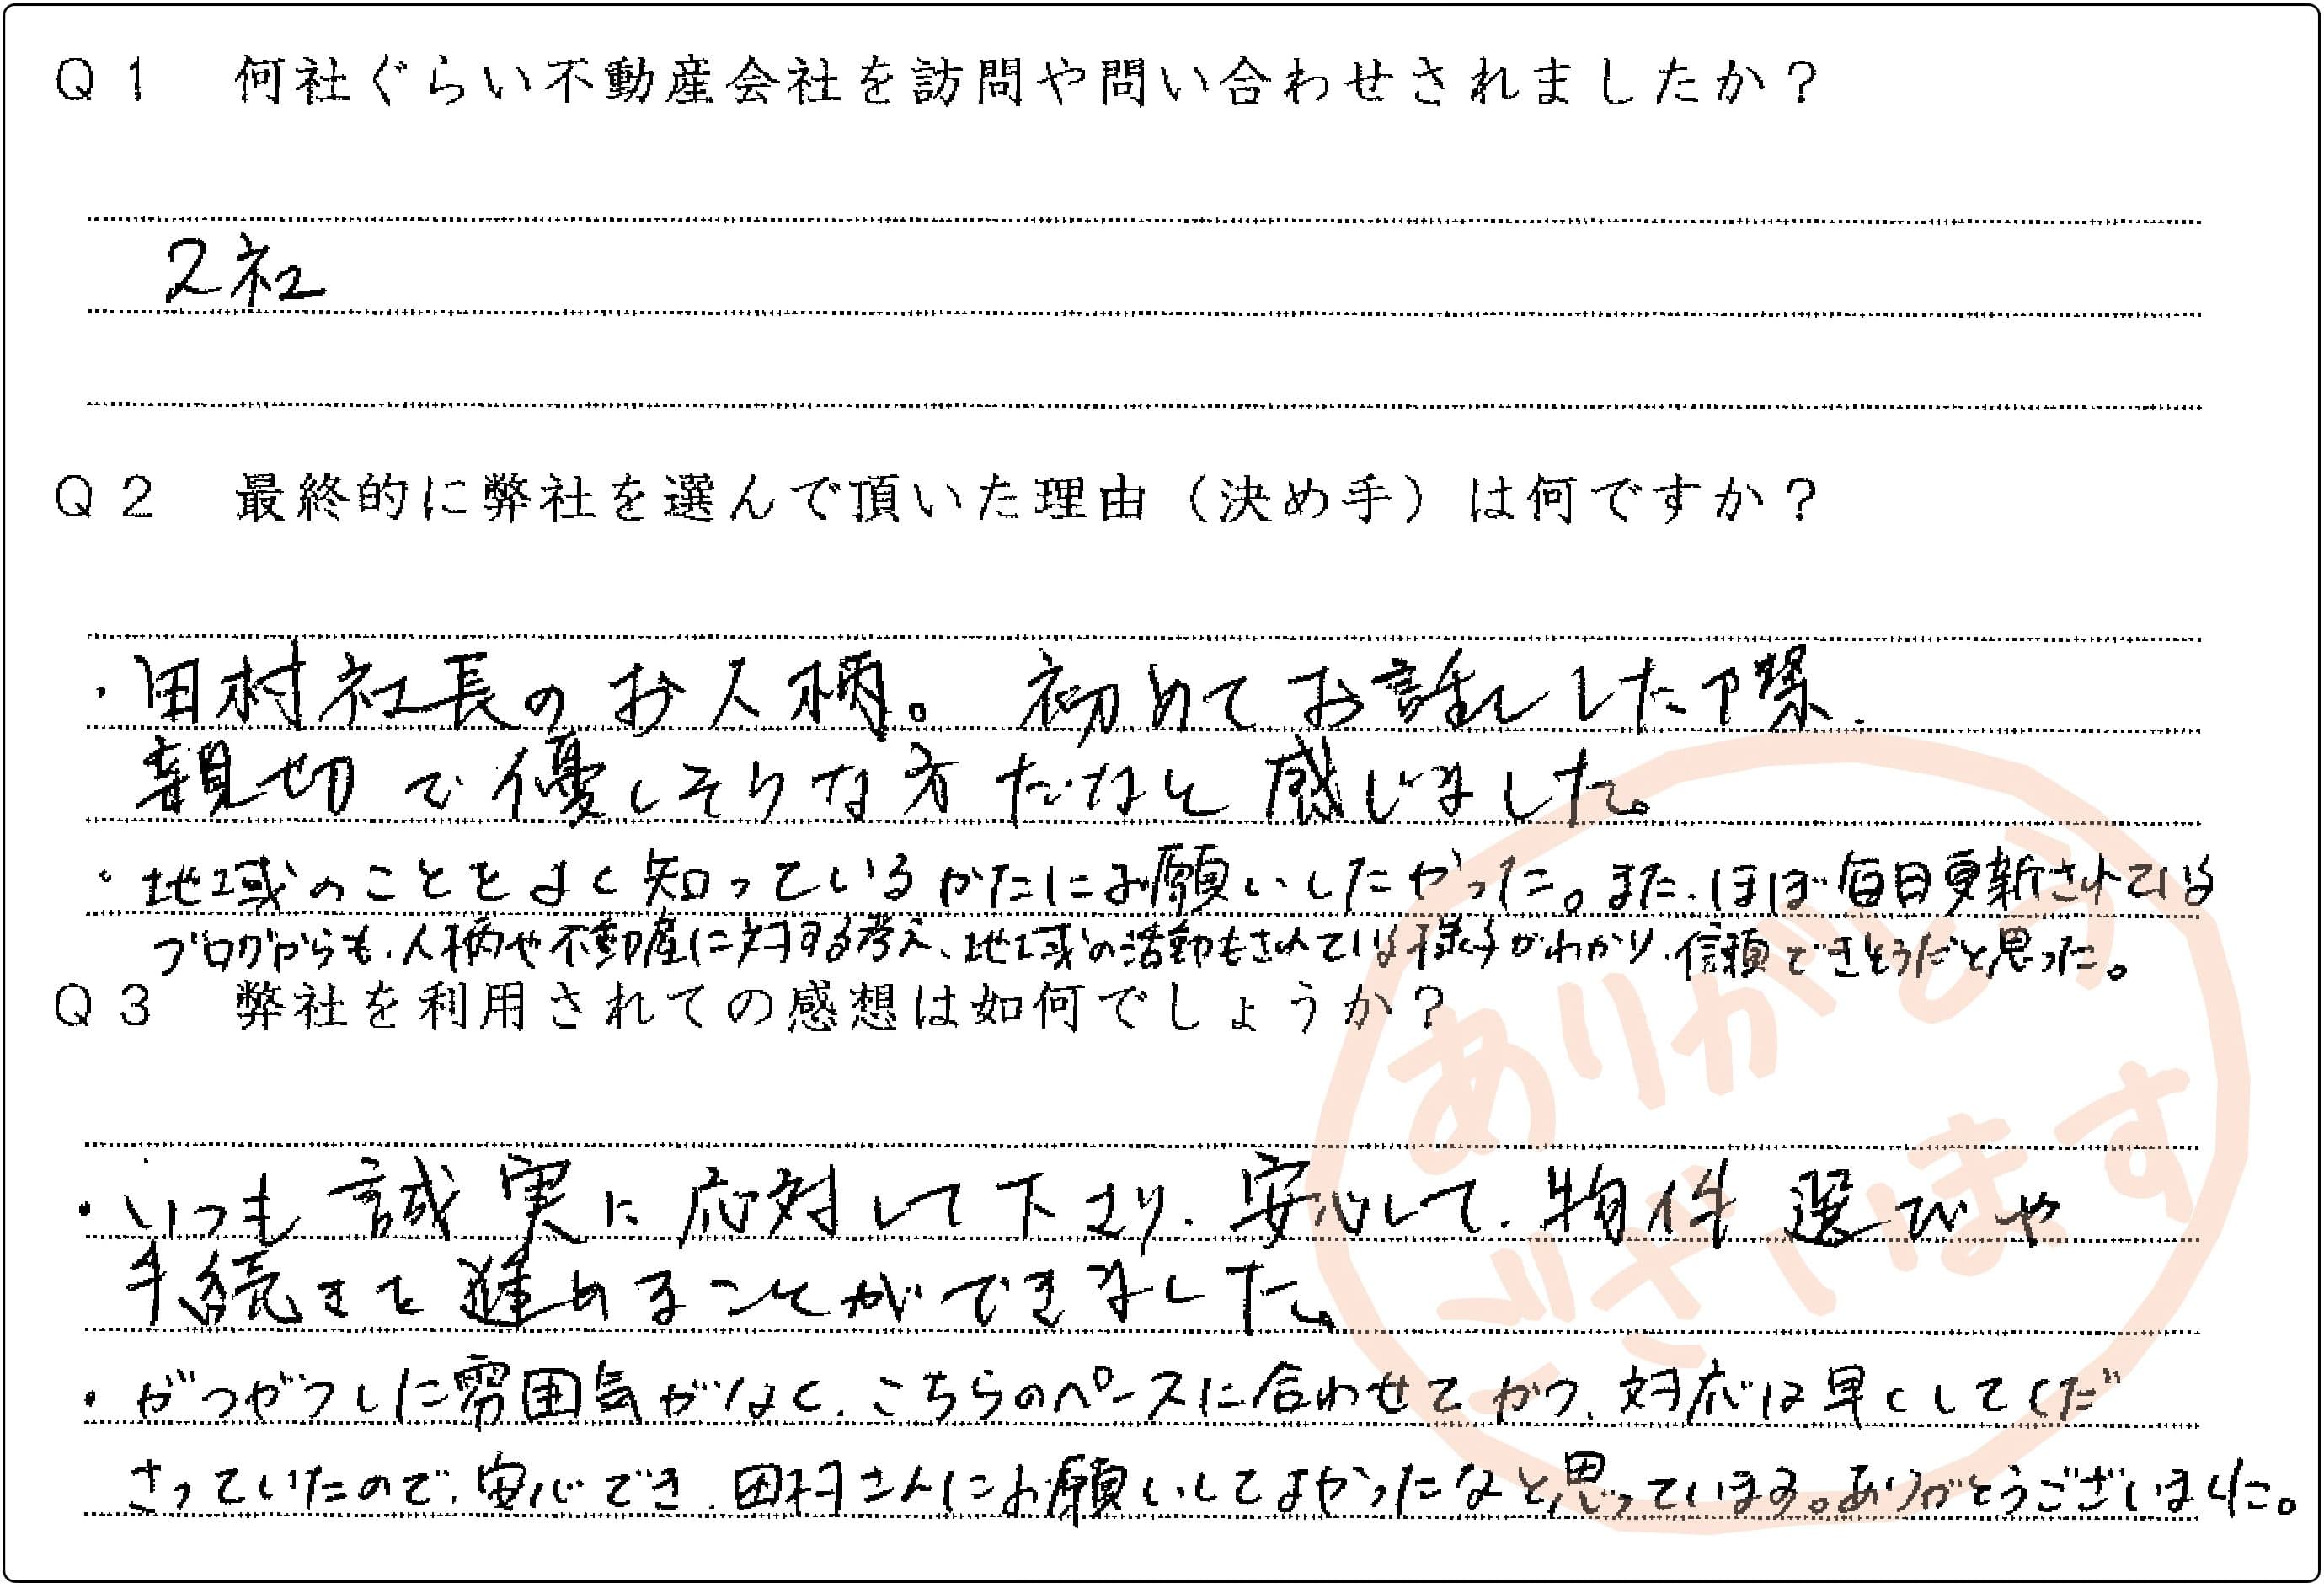 Q1 何社ぐらい不動産会社を訪問や問い合わせされましたか？
2社
Q2 最終的に弊社を選んで頂いた理由（決め手）は何ですか？
・田村社長のお人柄。初めてお話しした際、
親切で優しそうな方だなと感じました。
・地域のことをよく知っているかたにお願いしたかった。また、ほぼ毎日更新されている
ブログからも、人柄や不動産に対する考え、地域の活動もされている様子がわかり、信頼できそうだと思った。
Q3 弊社を利用されての感想は如何でしょうか？
・いつも誠実に応対して下さり、安心して、物件選びや
手続きを進めることができました。
・がつがつした雰囲気がなく、こちらのペースに合わせてかつ、対応は早くしてくだ
さっていたので、安心でき、田村さんにお願いしてよかったなと思っています。ありがとうございました。
ありがとう
ございます